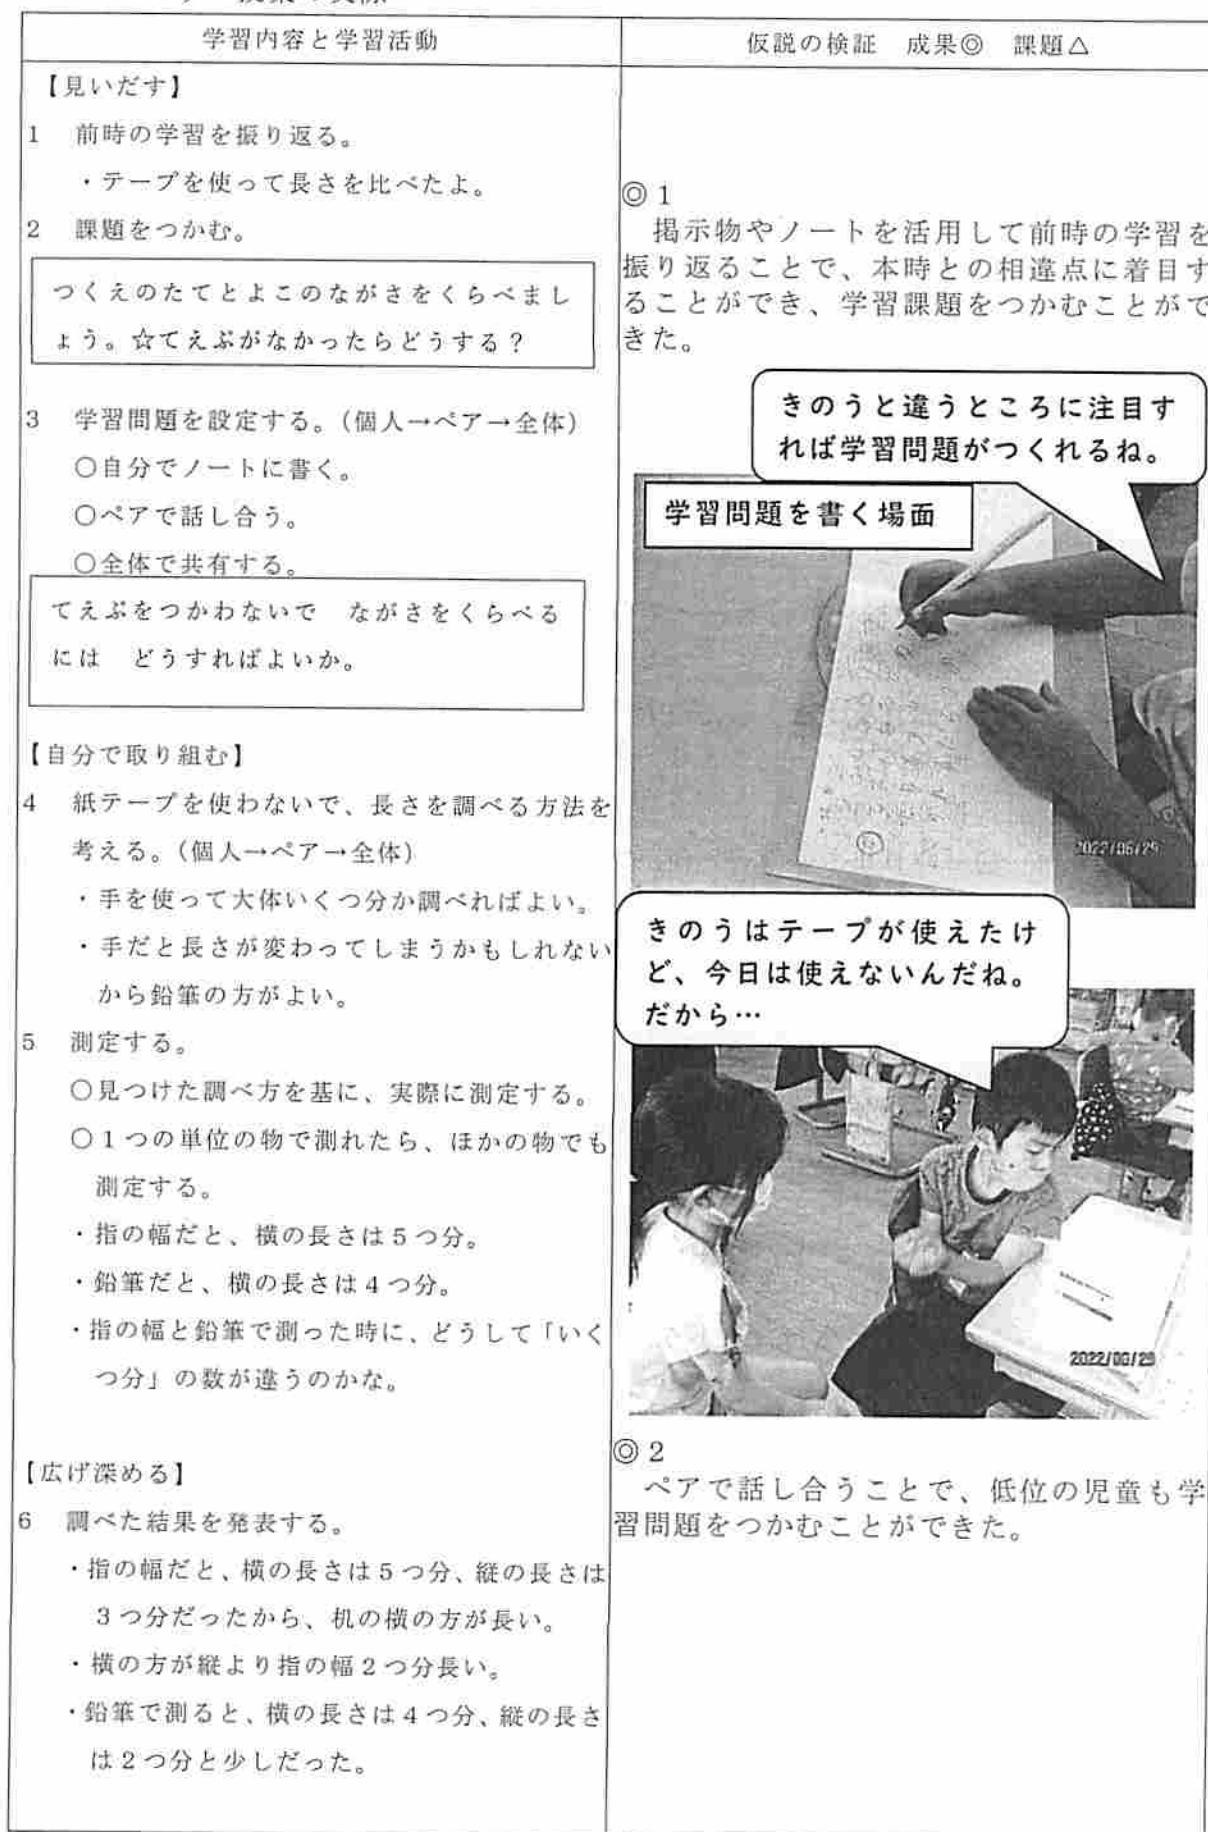 学習内容と学習活動
【見いだす】
1 前時の学習を振り返る。
・テープを使って長さを比べたよ。
2 課題をつかむ。
つくえのたてとよこのながさをくらべまし
ょう。☆てえぷがなかったらどうする？
3 学習問題を設定する。（個人→ペア→全体）
○自分でノートに書く。
○ペアで話し合う。
○全体で共有する。
てえぷをつかわないで ながさをくらべる
には どうすればよいか。
【自分で取り組む】
4 紙テープを使わないで、長さを調べる方法を
考える。（個人→ペア→全体）
・手を使って大体いくつ分か調べればよい。
・手だと長さが変わってしまうかもしれない
から鉛筆の方がよい。
5 測定する。
○見つけた調べ方を基に、実際に測定する。
○1つの単位の物で測れたら、ほかの物でも
測定する。
・指の幅だと、横の長さは5つ分。
・鉛筆だと、横の長さは4つ分。
・指の幅と鉛筆で測った時に、どうして「いく
つ分」の数が違うのかな。
【広げ深める】
6 調べた結果を発表する。
・指の幅だと、横の長さは5つ分、縦の長さは
3つ分だったから、机の横の方が長い。
・横の方が縦より指の幅2つ分長い。
・鉛筆で測ると、横の長さは4つ分、縦の長さ
は2つ分と少しだった。
仮説の検証 成果◎ 課題△
◎1
掲示物やノートを活用して前時の学習を
振り返ることで、本時との相違点に着目す
ることができ、学習課題をつかむことがで
きた。
きのうと違うところに注目す
れば学習問題がつくれるね。
学習問題を書く場面
2022/06/29
きのうはテープが使えたけ
ど、今日は使えないんだね。
だから…
2022/06/29
◎2
ペアで話し合うことで、低位の児童も学
習問題をつかむことができた。